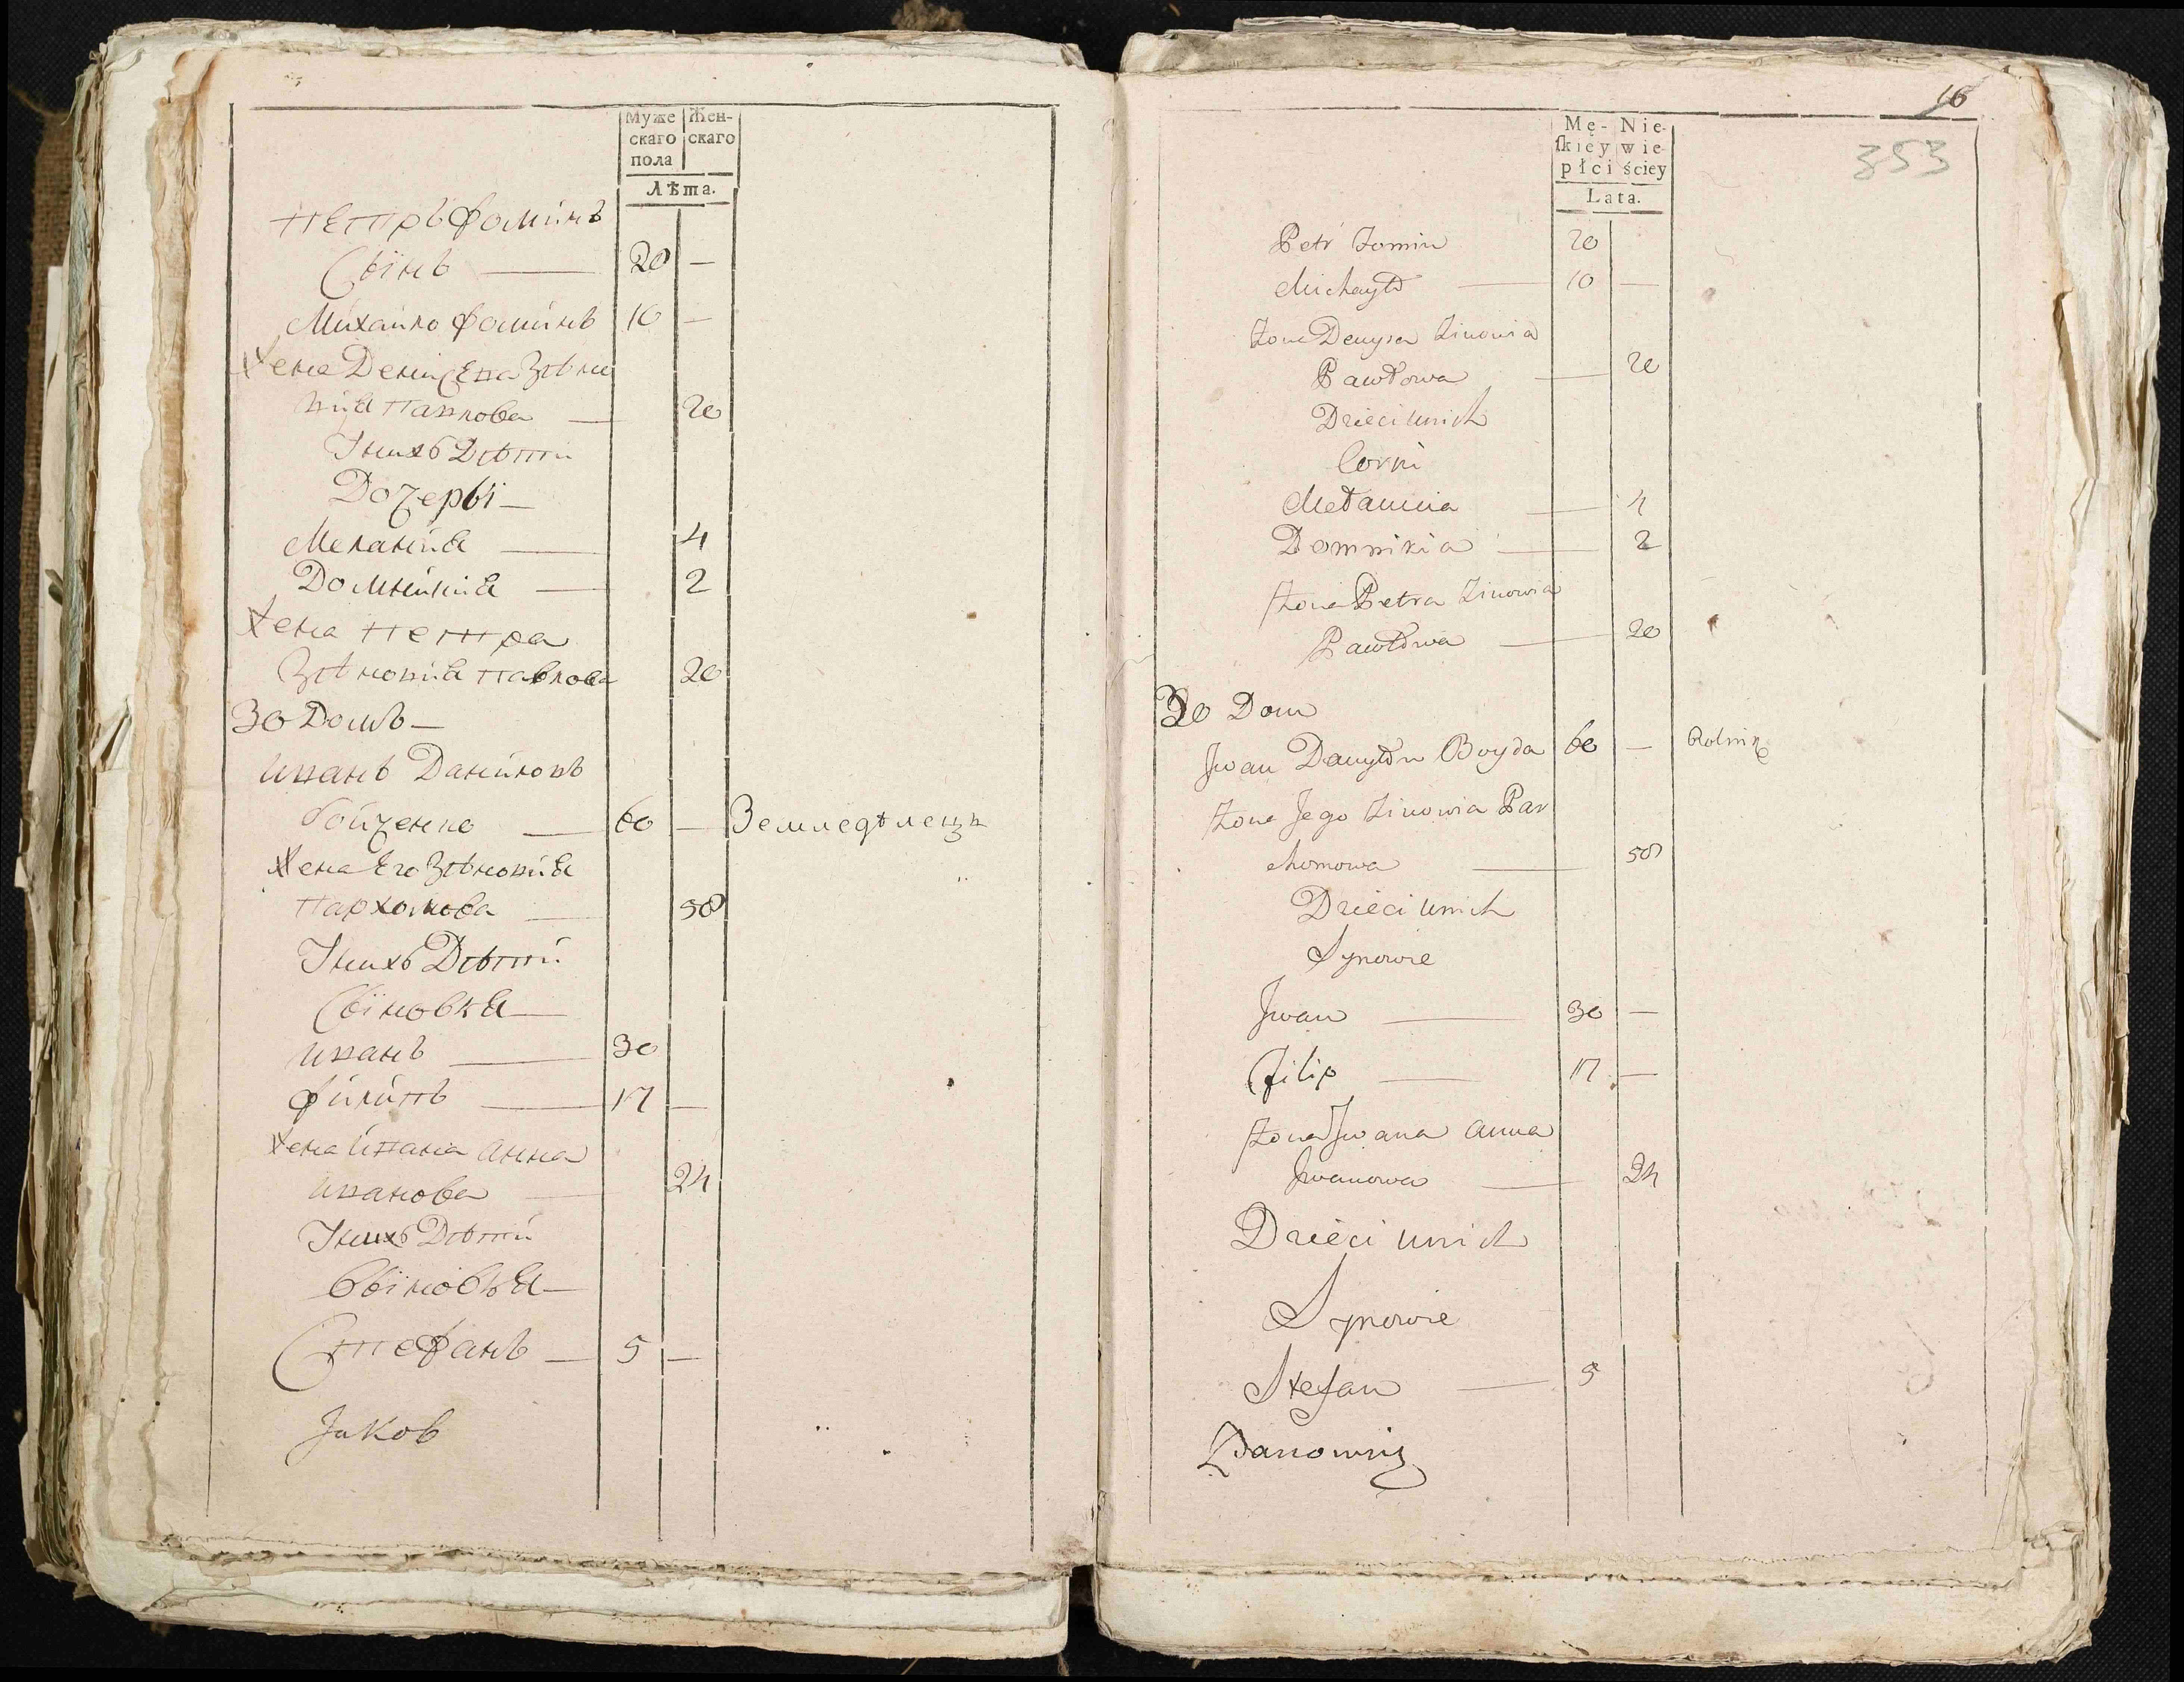 Муже Жен-
скаго скаго
пола
Лѣта.
Петръ Фоминъ
Сынъ — 20 —
Михайло Фоминъ 10 —
Жена Дениса Зѣно
вия Павлова — 20
У нихъ Дѣти
Дочеры —
Мелания — 4
Домникия — 2
Жена Петра
Зѣновия Павлова 20
30 Домъ —
Иванъ Даниловъ
Бойченко — 60 — Земледѣлецъ
Жена Его Зѣновия
Пархомова — 50
У нихъ Дѣти
Сыновья —
Иванъ — 30
Филипъ — 17 —
Жена Ивана Анна
Иванова — 24
У нихъ Дѣти
Сыновья —
Стефанъ — 5 —
Jakob
16
353
Mę- Nie-
ſkiey wie-
płci ściey
Lata.
Petr Fomin 20
Michayło — 10 —
Żona Denysa Zinowia
Pawłowa — 20
Dzieci u nich
Corki
Mełannia — 4
Domnikia — 2
Żona Petra Zinowia
Pawłowa — 20
30 Dom
Jwan Danyłow Boyda 60 — Rolnik
Żona Jego Zinowia Par
chomowa — 50
Dzieci u nich
Synowie
Jwan — 30 —
Filip — 17 —
Żona Jwana Anna
Jwanowa — 24
Dzieci u nich
Synowie
Stefan — 5
Zdanowicz